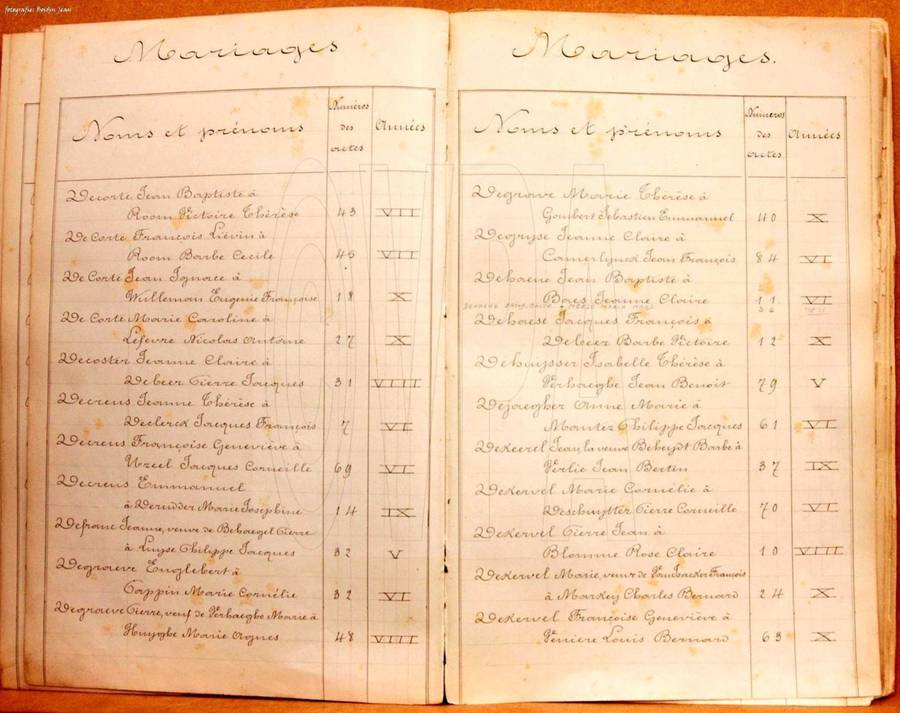 fotografie: Boidin Jean
Mariages
Noms et prénoms
Numéros des actes
Années
Decorte Jean Baptiste à
Room Victoire Thérèse 43 VII
De Corte François Liévin à
Room Barbe Cecile 45 VII
De Corte Jean Ignace à
Willeman Eugenie Françoise 18 X
De Corte Marie Caroline à
Lefevre Nicolas Antoine 27 X
Decoster Jeanne Claire à
Debeer Pierre Jacques 31 VIIII
Decrens Jeanne Thérèse à
Declerck Jacques François 7 VI
Decrens Françoise Geneviève à
Urcel Jacques Corneille 69 VI
Decrens Emmanuel
à Derudder Marie Josephine 14 IX
Defranc Jeanne, veuve de Behaegel Pierre
à Luyse Philippe Jacques 82 V
Degraeve Englebert à
Cappin Marie Cornélie 32 VI
Degraeve Pierre, veuf de Verhaeghe Marie à
Ghuyghe Marie Agnes 48 VIIII
Mariages.
Noms et prénoms
Numéros des actes
Années
Degrave Marie Thérèse à
Gombert Sebastien Emmanuel 40 X
Degryse Jeanne Claire à
Camerlynck Jean François 84 VI
Dehaene Jean Baptiste à
Baes Jeanne Claire 11 VI
Dehaese Jacques François à
Debeer Barbe Victoire 12 X
Dehuysser Isabelle Thérèse à
Verhaeghe Jean Benoit 79 V
Dejaegher Anne Marie à
Mantez Philippe Jacques 61 VI
Dekeerel Jean, la veuve Beheydt Barbe à
Verlie Jean Bertin 37 IX
Dekervel Marie Cornélie à
Deschuytter Pierre Corneille 70 VI
Dekervel Pierre Jean à
Blomme Rose Claire 10 VIIII
Dekervel Marie, veuve de François
à Markey Charles Bernard 24 X
Dekervel Françoise Geneviève à
Veniere Louis Bernard 63 X